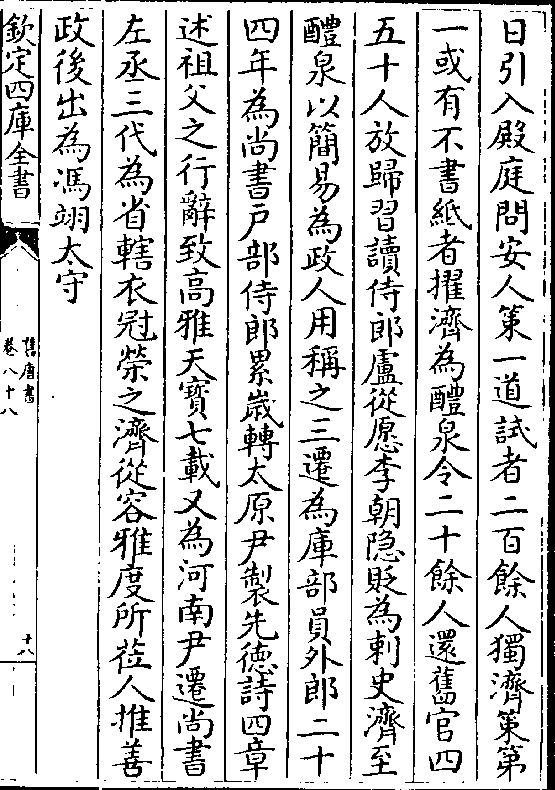 日引入殿庭問安人策一道試者二百餘人獨濟策第
一或有不書紙者擢濟為醴泉令二十餘人還舊官四
五十人放歸習讀侍郎盧從愿李朝隐貶為刺史濟至
醴泉以簡易為政人用稱之三遷為庫部員外郎二十
四年為尚書戸部侍郎累歳轉太原尹製先德詩四章
述祖父之行辭致高雅天寳七載又為河南尹遷尚書
左丞三代為省轄衣冠榮之濟從容雅度所莅人推善
政後出為馮翊太守
欽定四庫全書
舊唐書
卷八十八
十八